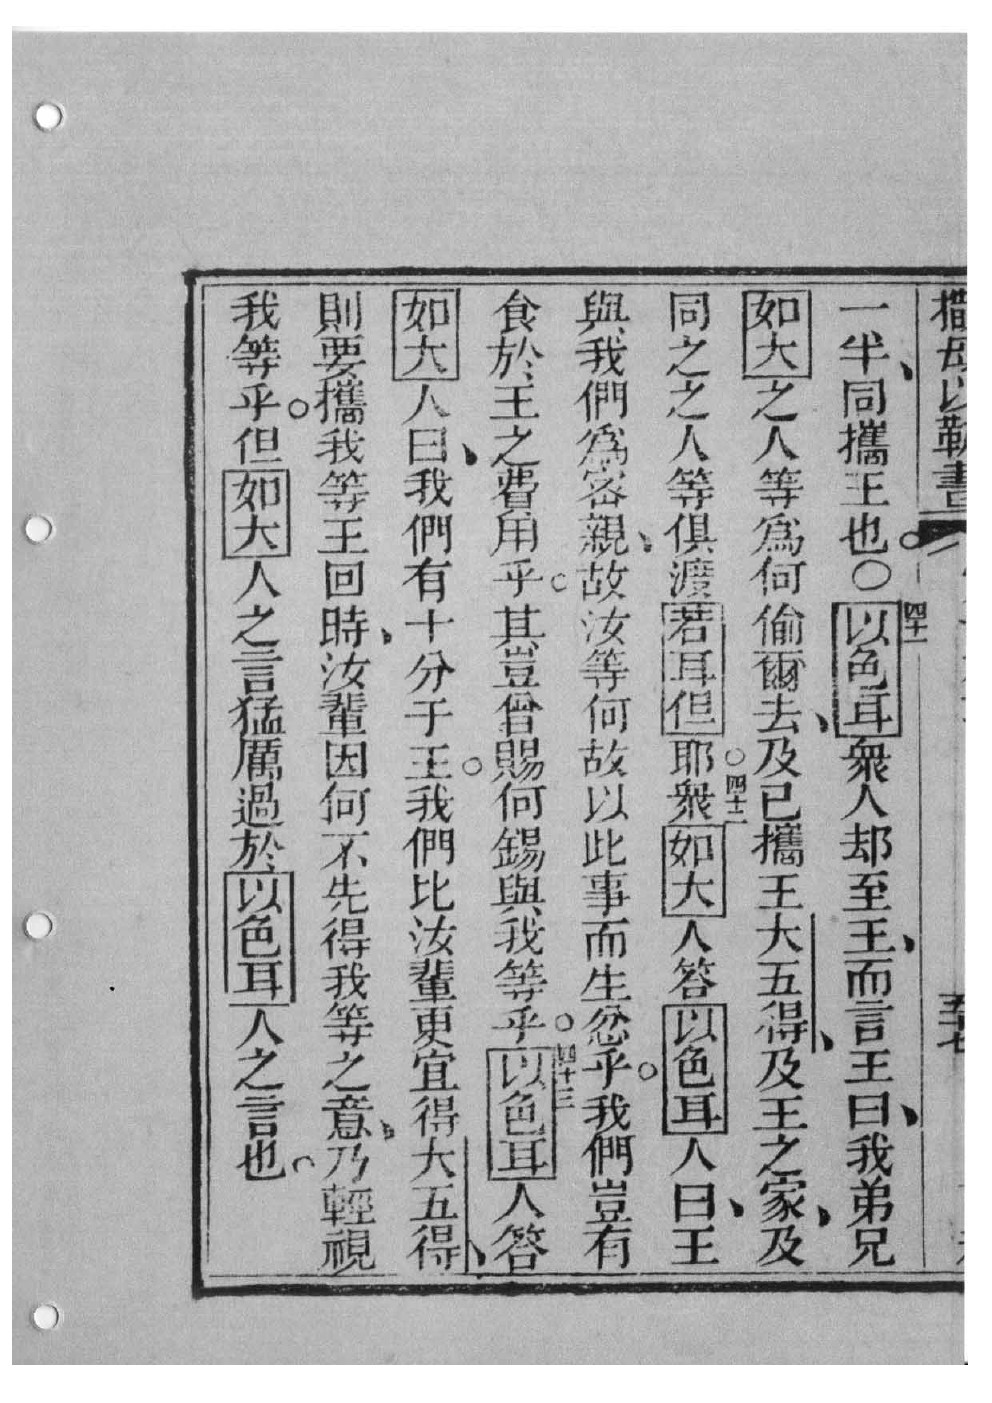 撒母以勒書
一半、同攜王也。○四十一以色耳衆人却至王、而言王曰、我弟兄
如大之人等爲何偷爾去、及已攜王大五得、及王之家、及
同之之人等俱渡若耳但耶。四十二衆如大人答以色耳人曰、王
與我們爲密親、故汝等何故以此事而生忿乎。我們豈有
食於王之費用乎。其豈曾賜何錫與我等乎。四十三以色耳人答
如大人曰、我們有十分于王。我們比汝輩更宜得大五得、
則要攜我等王回時、汝輩因何不先得我等之意、乃輕視
我等乎。但如大人之言猛厲過於以色耳人之言也。